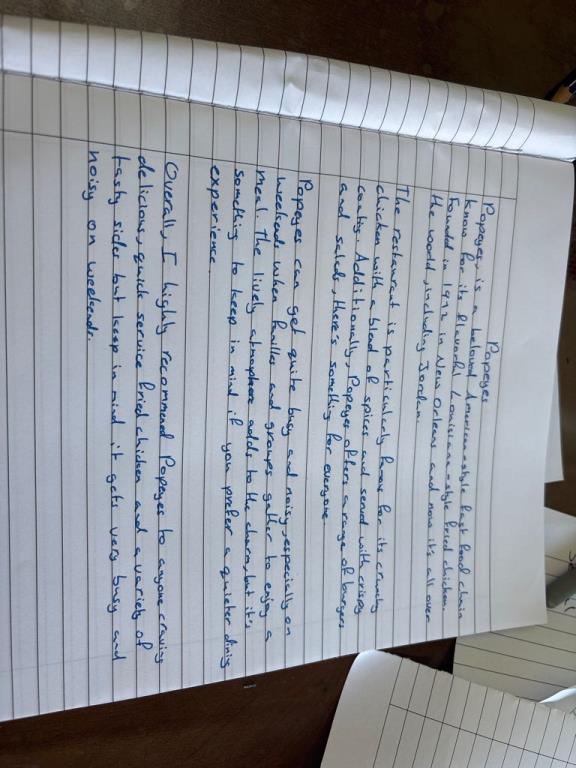 Popeyes
Popeyes, is a beloved American-style fast food chain
know for its flavorful Louisiana-style fried chicken.
Foundd in 1972 in New Orleans and now its all over
the world, including Jordan.
The restaurant is particularly famous for its crunchy
chicken with a blend of spices and served with crispy
coating. Additionally, Popeyes offers a range of burgers
and salads, there's something for everyone
Popeyes can get quite busy and noisy, especially on
weekends when families and groups gather to enjoy a
meal. The lively atmosphere adds to the charm, but it's
something to keep in mind if you prefer a quieter dining
experience.
Overall, I highly recommend Popeyes to anyone craving
delicious, quick service fried chicken and a variety of
tasty sides but keep in mind it gets very busy and
noisy on weekends.